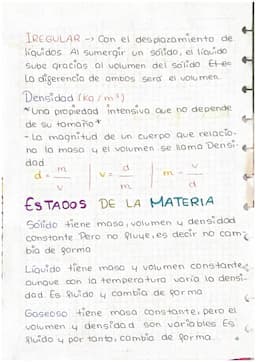 IREGULAR -> Con el desplazamiento de
líquidos. Al sumergir un sólido, el líquido
sube gracias al volumen del sólido.
La diferencia de ambos será el volumen.
Densidad (Kg/m³)
*Una propiedad intensiva que no depende
de su tamaño*
- La magnitud de un cuerpo que relacio-
na la masa y el volumen se llama Densi-
dad
d = m/v | v = d/m | m - v/d
ESTADOS DE LA MATERIA
Sólido tiene masa, volumen y densidad
constante Pero no fluye, es decir no cam-
bia de forma
Líquido tiene masa y volumen constante,
aunque con la temperatura varía la densi-
dad. Es fluido y cambia de forma
Gaseoso tiene masa constante, pero el
volumen y densidad son variables Es
fluido y por tanto, cambia de forma.